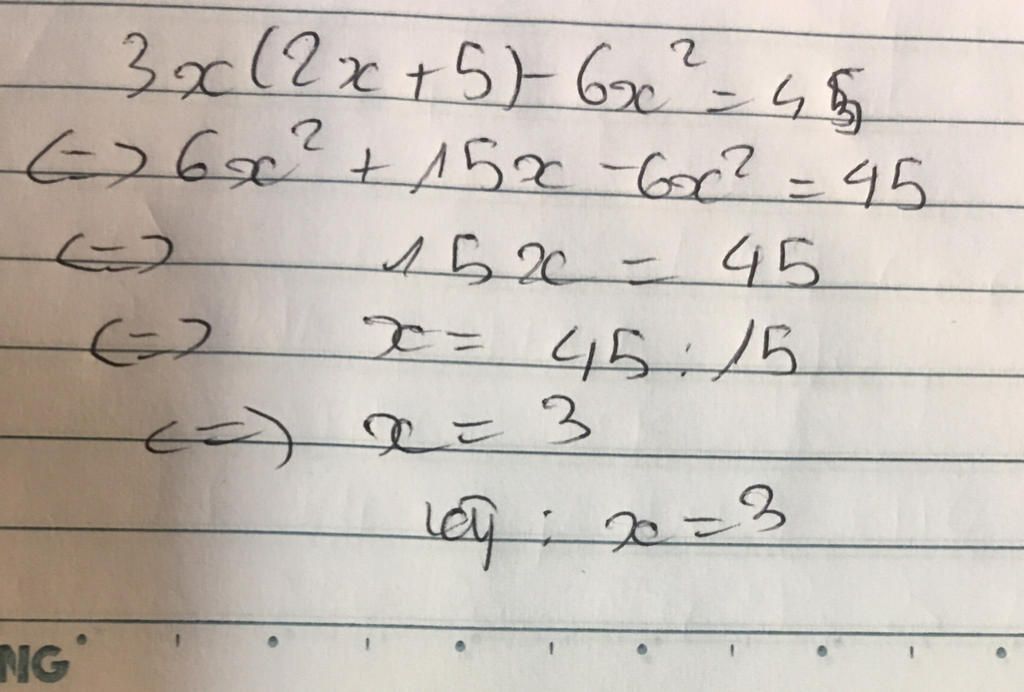 3x(2x+5)-6x² = 45
<=> 6x² + 15x -6x² = 45
<=> 15x = 45
<=> x = 45 : 15
<=> x = 3
Vậy : x = 3
NG